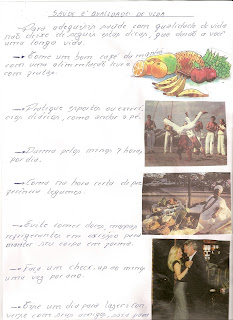 SAÚDE E QUALIDADE DE VIDA
Para adequirir saúde com qualidade de vida
não deixe de seguir estas dicas, que darão a você
uma longa vida.
→ Tome um bom café da manhã
com uma alimentação leve
com frutas.
→ Pratique esportes ou exercí
cios diários, como andar a pé.
→ Durma pelas menos 7 horas
por dia.
→ Coma na hora certa de pre
ferência legumes.
→ Evite comer doces, massas
refrigerantes em excesso para
manter seu corpo em forma.
→ Faça um check-up ao menos
uma vez por ano.
→ Tire um dia para lazer, con
verse com seus amigos, saia para